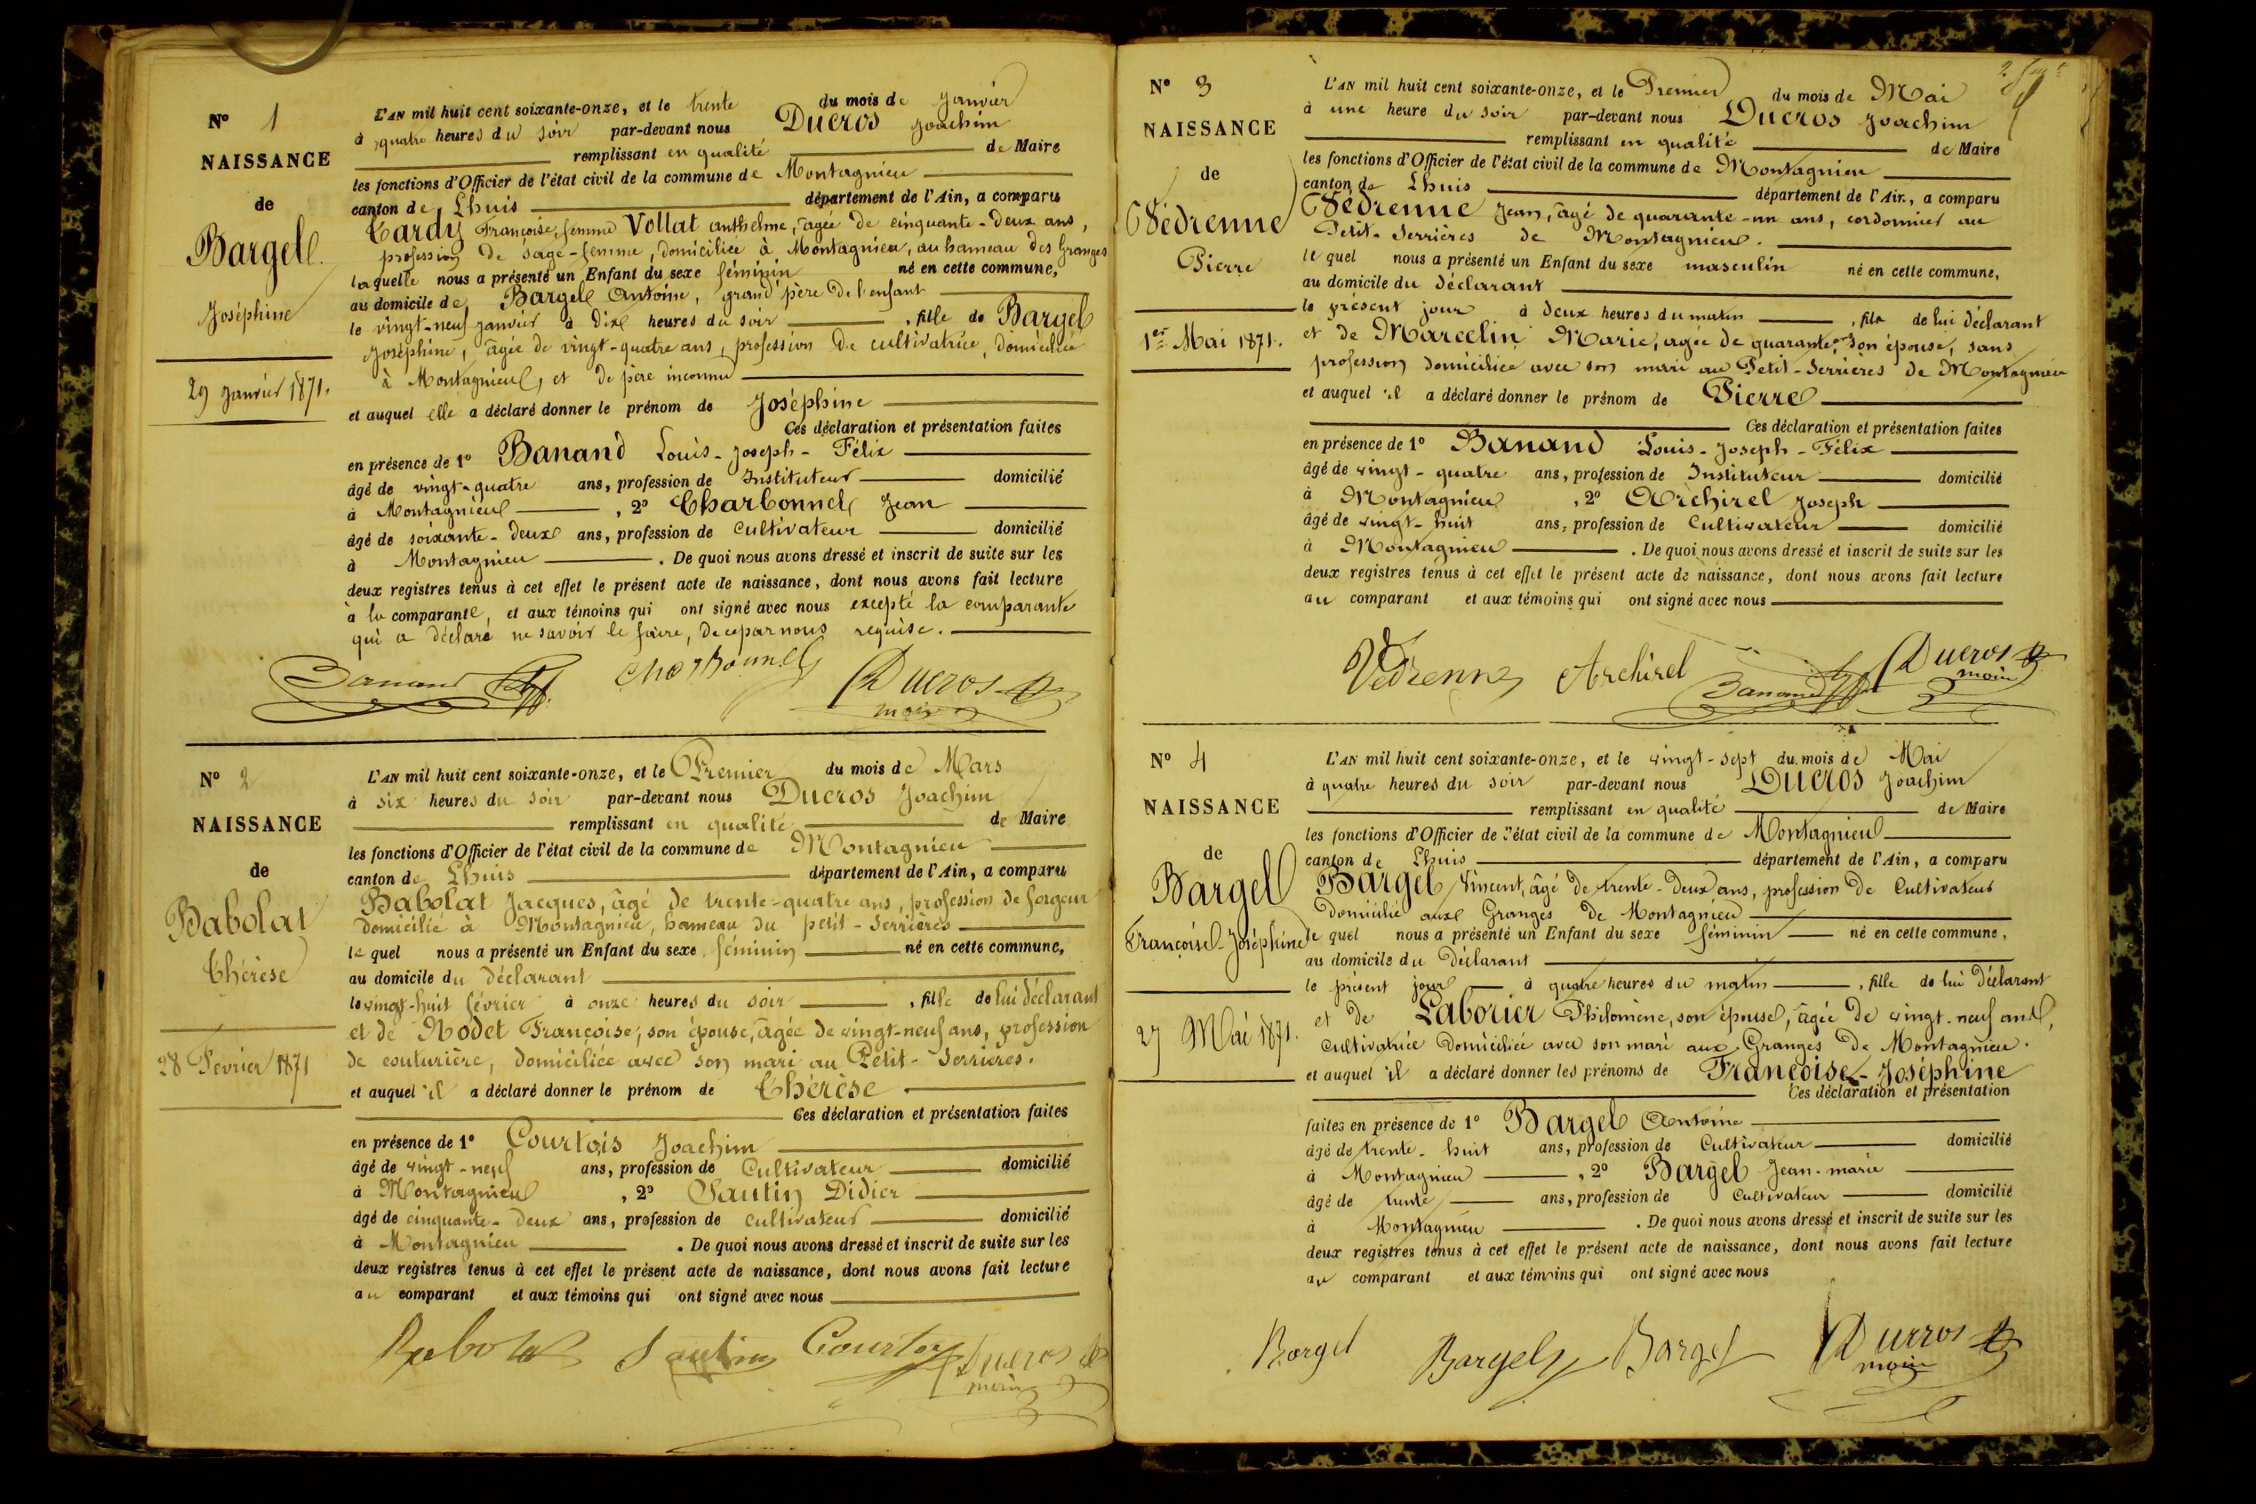 N° 1
NAISSANCE
de
Bargel
Joséphine
29 Janvier 1871.
L'AN mil huit cent soixante-onze, et le trente du mois de Janvier
à quatre heures du soir par-devant nous Ducros Joachim
remplissant en qualité de Maire
les fonctions d'Officier de l'état civil de la commune de Montagnieu
canton de Lhuis département de l'Ain, a comparu
Tardy Françoise, femme Vollat anthelme, âgée de cinquante-deux ans,
profession de sage-femme, domiciliée à Montagnieu, au hameau des Granges
laquelle nous a présenté un Enfant du sexe féminin né en cette commune,
au domicile de Bargel Antoine, grand père de l'enfant
le vingt-neuf janvier à dix heures du soir, fille de Bargel
Joséphine, âgée de vingt-quatre ans, profession de cultivatrice, domiciliée
à Montagnieu, et de père inconnu
et auquel elle a déclaré donner le prénom de Joséphine
Ces déclaration et présentation faites
en présence de 1° Banand Louis-Joseph-Félix
âgé de vingt-quatre ans, profession de Instituteur domicilié
à Montagnieu, 2° Charbonnel Jean
âgé de soixante-deux ans, profession de Cultivateur domicilié
à Montagnieu. De quoi nous avons dressé et inscrit de suite sur les
deux registres tenus à cet effet le présent acte de naissance, dont nous avons fait lecture
à la comparante, et aux témoins qui ont signé avec nous excepté la comparante
qui a déclaré ne savoir le faire, de ce par nous requise.
Banand Charbonnel Ducros
maire
N° 2
NAISSANCE
de
Babolat
Thérèse
28 Fevrier 1871
L'AN mil huit cent soixante-onze, et le Premier du mois de Mars
à six heures du soir par-devant nous Ducros Joachim
remplissant en qualité de Maire
les fonctions d'Officier de l'état civil de la commune de Montagnieu
canton de Lhuis département de l'Ain, a comparu
Babolat Jacques, âgé de trente-quatre ans, profession de forgeur
domicilié à Montagnieu, hameau du petit-Serrières
le quel nous a présenté un Enfant du sexe féminin né en cette commune,
au domicile du déclarant
le vingt-huit février à onze heures du soir, fille de lui déclarant
et de Nodet Françoise, son épouse, âgée de vingt-neuf ans, profession
de couturière, domiciliée avec son mari au Petit-Serrières.
et auquel il a déclaré donner le prénom de Thérèse
Ces déclaration et présentation faites
en présence de 1° Courtois Joachim
âgé de vingt-neuf ans, profession de Cultivateur domicilié
à Montagnieu, 2° Sautin Didier
âgé de cinquante-deux ans, profession de cultivateur domicilié
à Montagnieu. De quoi nous avons dressé et inscrit de suite sur les
deux registres tenus à cet effet le présent acte de naissance, dont nous avons fait lecture
au comparant et aux témoins qui ont signé avec nous
Babolat Sautin Courtois Ducros
maire
N° 3
NAISSANCE
de
Védrenne
Pierre
1er Mai 1871.
L'AN mil huit cent soixante-onze, et le Premier du mois de Mai
à une heure du soir par-devant nous Ducros Joachim
remplissant en qualité de Maire
les fonctions d'Officier de l'état civil de la commune de Montagnieu
canton de Lhuis département de l'Ain, a comparu
Védrenne Jean, âgé de quarante-un ans, cordonnier au
Petit-Serrières de Montagnieu.
le quel nous a présenté un Enfant du sexe masculin né en cette commune,
au domicile du déclarant
le présent jour à deux heures du matin, fils de lui déclarant
et de Marcelin Marie, âgée de quarante, son épouse, sans
profession domiciliée avec son mari au Petit-Serrières de Montagnieu
et auquel il a déclaré donner le prénom de Pierre
Ces déclaration et présentation faites
en présence de 1° Banand Louis-Joseph-Félix
âgé de vingt-quatre ans, profession de Instituteur domicilié
à Montagnieu, 2° Archirel Joseph
âgé de vingt-huit ans, profession de Cultivateur domicilié
à Montagnieu. De quoi nous avons dressé et inscrit de suite sur les
deux registres tenus à cet effet le présent acte de naissance, dont nous avons fait lecture
au comparant et aux témoins qui ont signé avec nous
Védrenne Archirel Banand Ducros
maire
N° 4
NAISSANCE
de
Bargel
Françoise-Joséphine
27 Mai 1871.
L'AN mil huit cent soixante-onze, et le vingt-sept du mois de Mai
à quatre heures du soir par-devant nous Ducros Joachim
remplissant en qualité de Maire
les fonctions d'Officier de l'état civil de la commune de Montagnieu
canton de Lhuis département de l'Ain, a comparu
Bargel Vincent, âgé de trente-deux ans, profession de Cultivateur
domicilié aux Granges de Montagnieu
le quel nous a présenté un Enfant du sexe féminin né en cette commune,
au domicile du Déclarant
le présent jour à quatre heures du matin, fille de lui Déclarant
et de Laborier Philomène, son épouse, âgée de vingt-neuf ans,
Cultivatrice Domiciliée avec son mari aux Granges de Montagnieu.
et auquel il a déclaré donner les prénoms de Françoise-Joséphine
Ces déclaration et présentation
faites en présence de 1° Bargel Antoine
âgé de trente-huit ans, profession de Cultivateur domicilié
à Montagnieu, 2° Bargel Jean-marie
âgé de trente ans, profession de Cultivateur domicilié
à Montagnieu. De quoi nous avons dressé et inscrit de suite sur les
deux registres tenus à cet effet le présent acte de naissance, dont nous avons fait lecture
au comparant et aux témoins qui ont signé avec nous
Bargel Bargel Bargel Ducros
maire